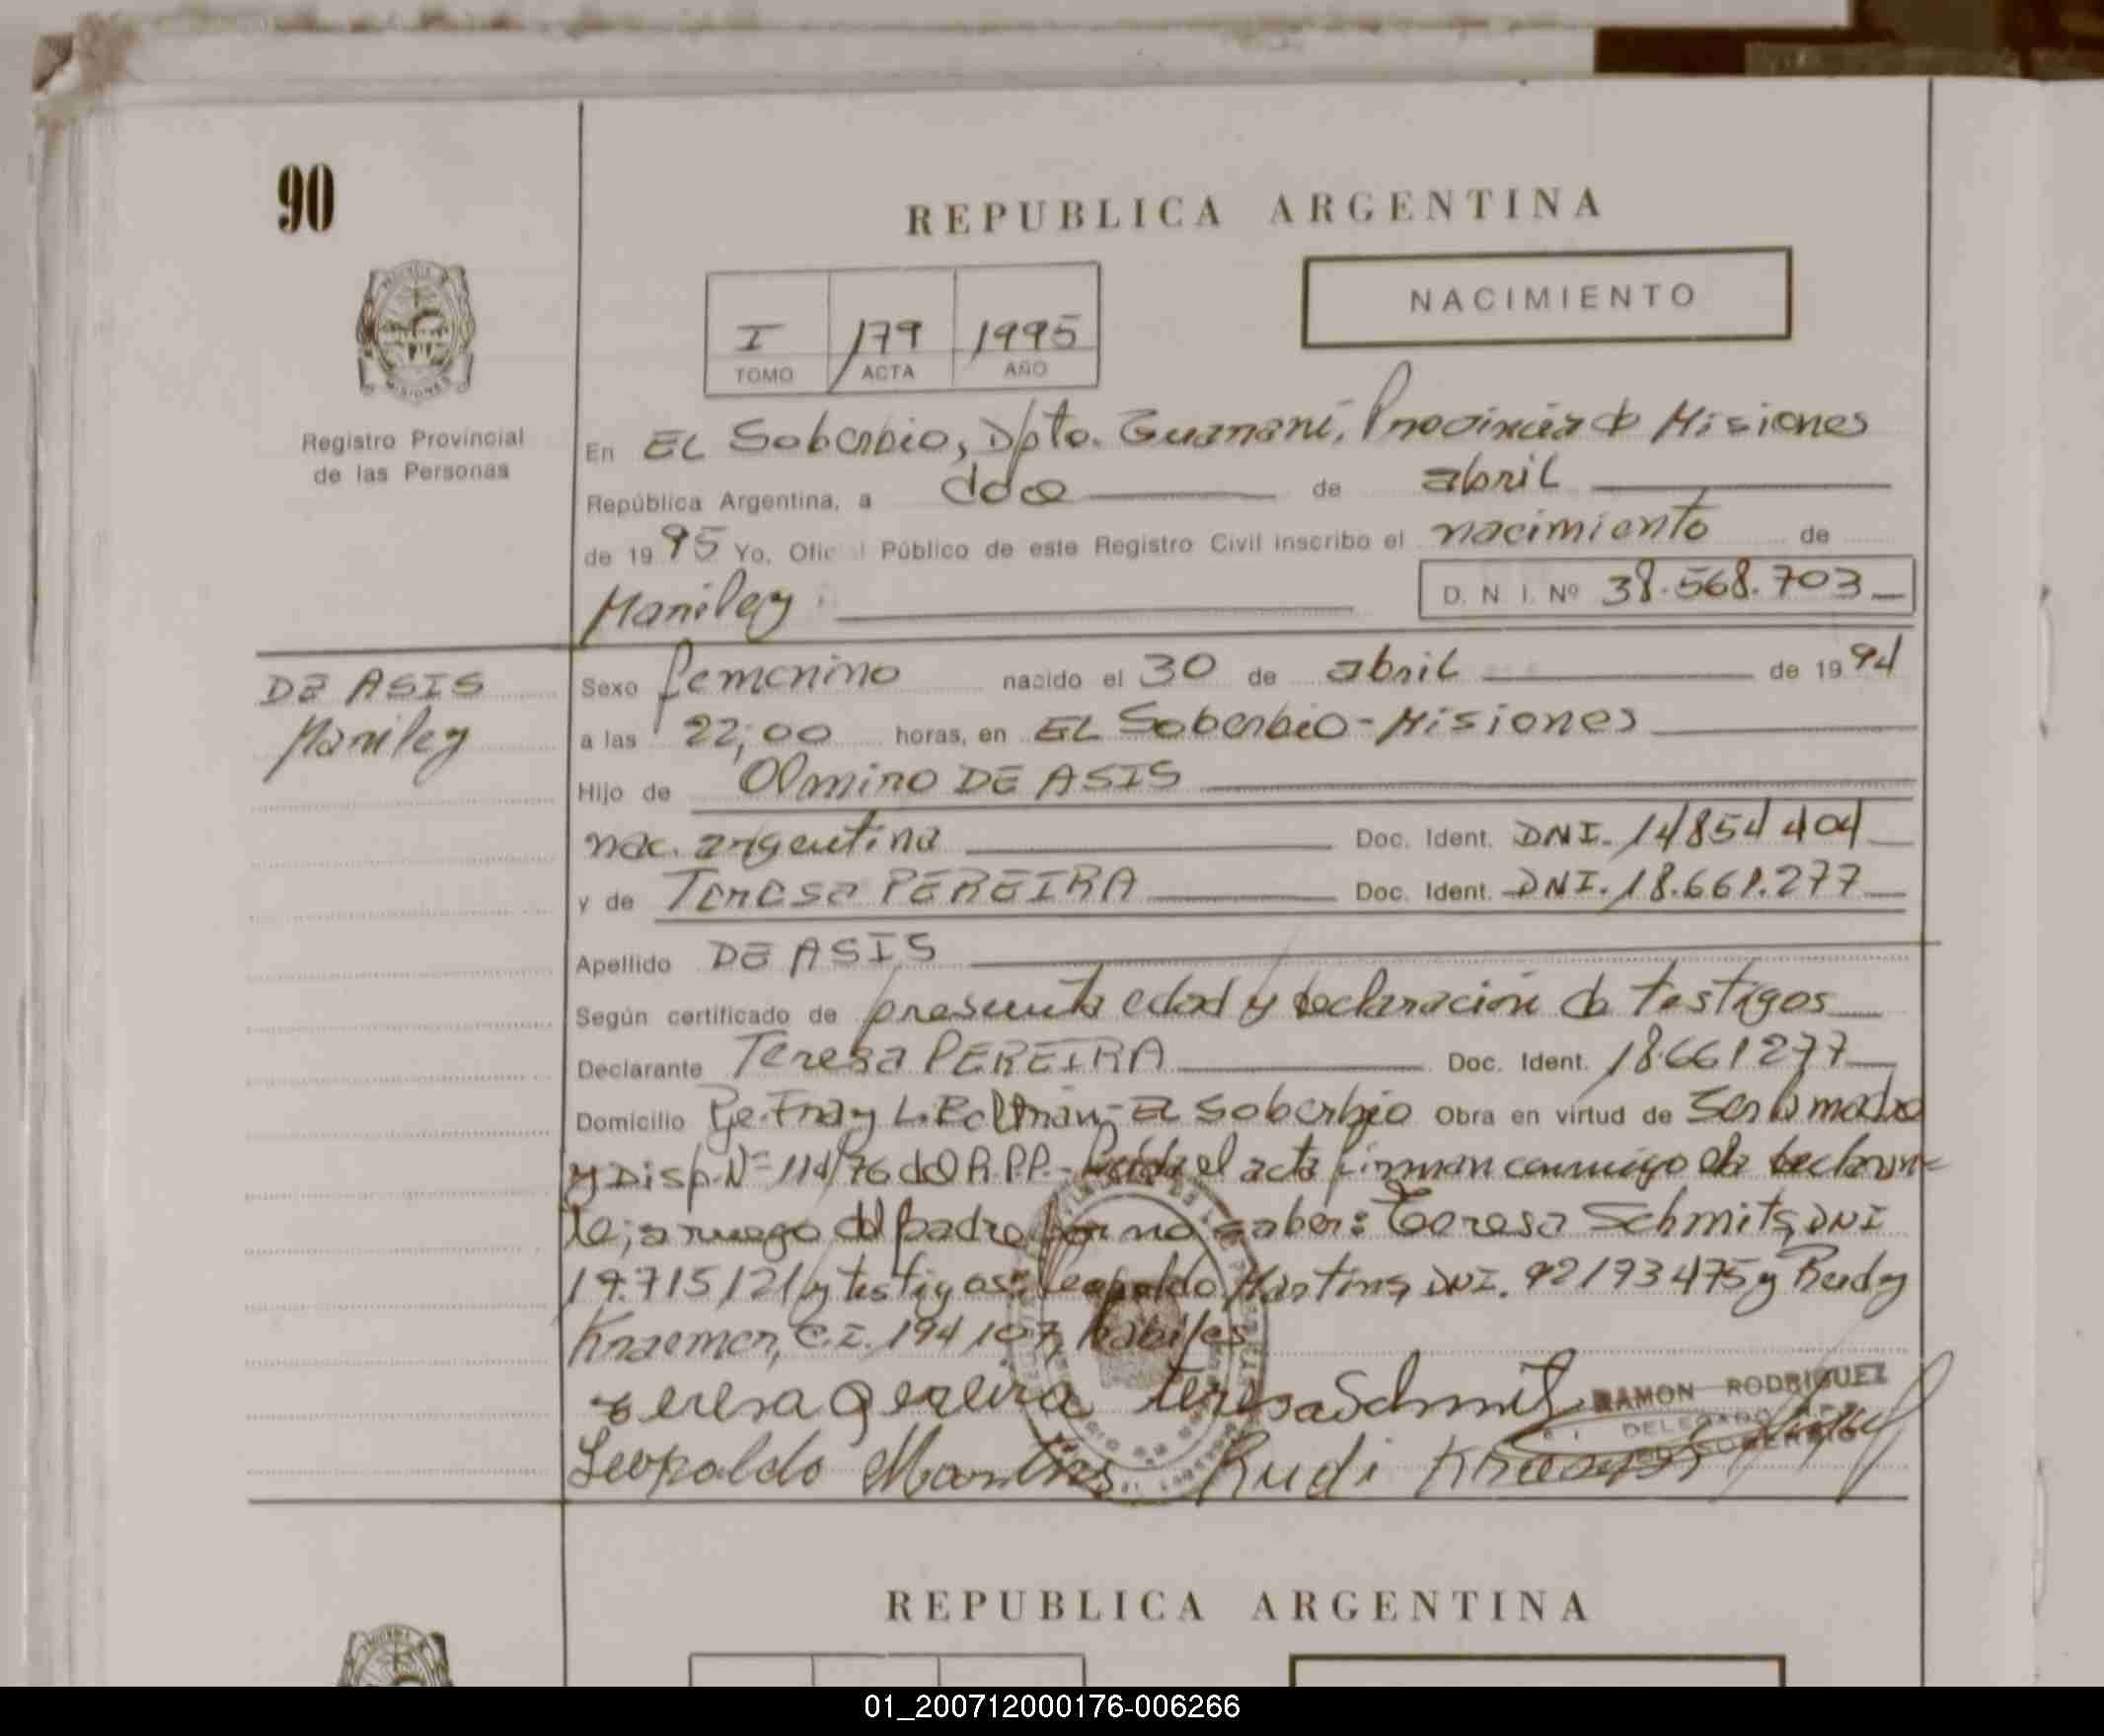 90
REPUBLICA ARGENTINA
NACIMIENTO
I 179 1995
TOMO ACTA AÑO
Registro Provincial
de las Personas
En EL Soberbio, Dpto. Guaraní, Provincia de Misiones
República Argentina, a doce de abril
de 1995 Yo, Oficial Público de este Registro Civil inscribo el nacimiento de
Mariley D. N. I. Nº 38.568.703
DE ASIS
Mariley
Sexo femenino nacido el 30 de abril de 1994
a las 22,00 horas, en EL Soberbio - Misiones
Hijo de Olmiro DE ASIS
nac. argentina Doc. Ident. DNI. 14854404
y de Teresa PEREIRA Doc. Ident. DNI. 18.661.277
Apellido DE ASIS
Según certificado de presunta edad y declaración de testigos
Declarante Teresa PEREIRA Doc. Ident. 18.661277
Domicilio Pje. Fray L. Beltrán - El Soberbio Obra en virtud de Ser la madre
y Disp. Nº 114/76 del R.P.P. - Leída el acta firman conmigo la declaran-
te; a ruego del padre por no saber: Teresa Schmitz, DNI
19.715121 y testigos: Leopoldo Martins, DNI. 92193475 y Rudy
Kraemer, C.I. 194107, hábiles
teresa pereira teresa Schmitz
RAMON RODRIGUEZ
DELEGADO
EL SOBERBIO
Leopoldo Martins Rudi
REPUBLICA ARGENTINA
01_200712000176-006266